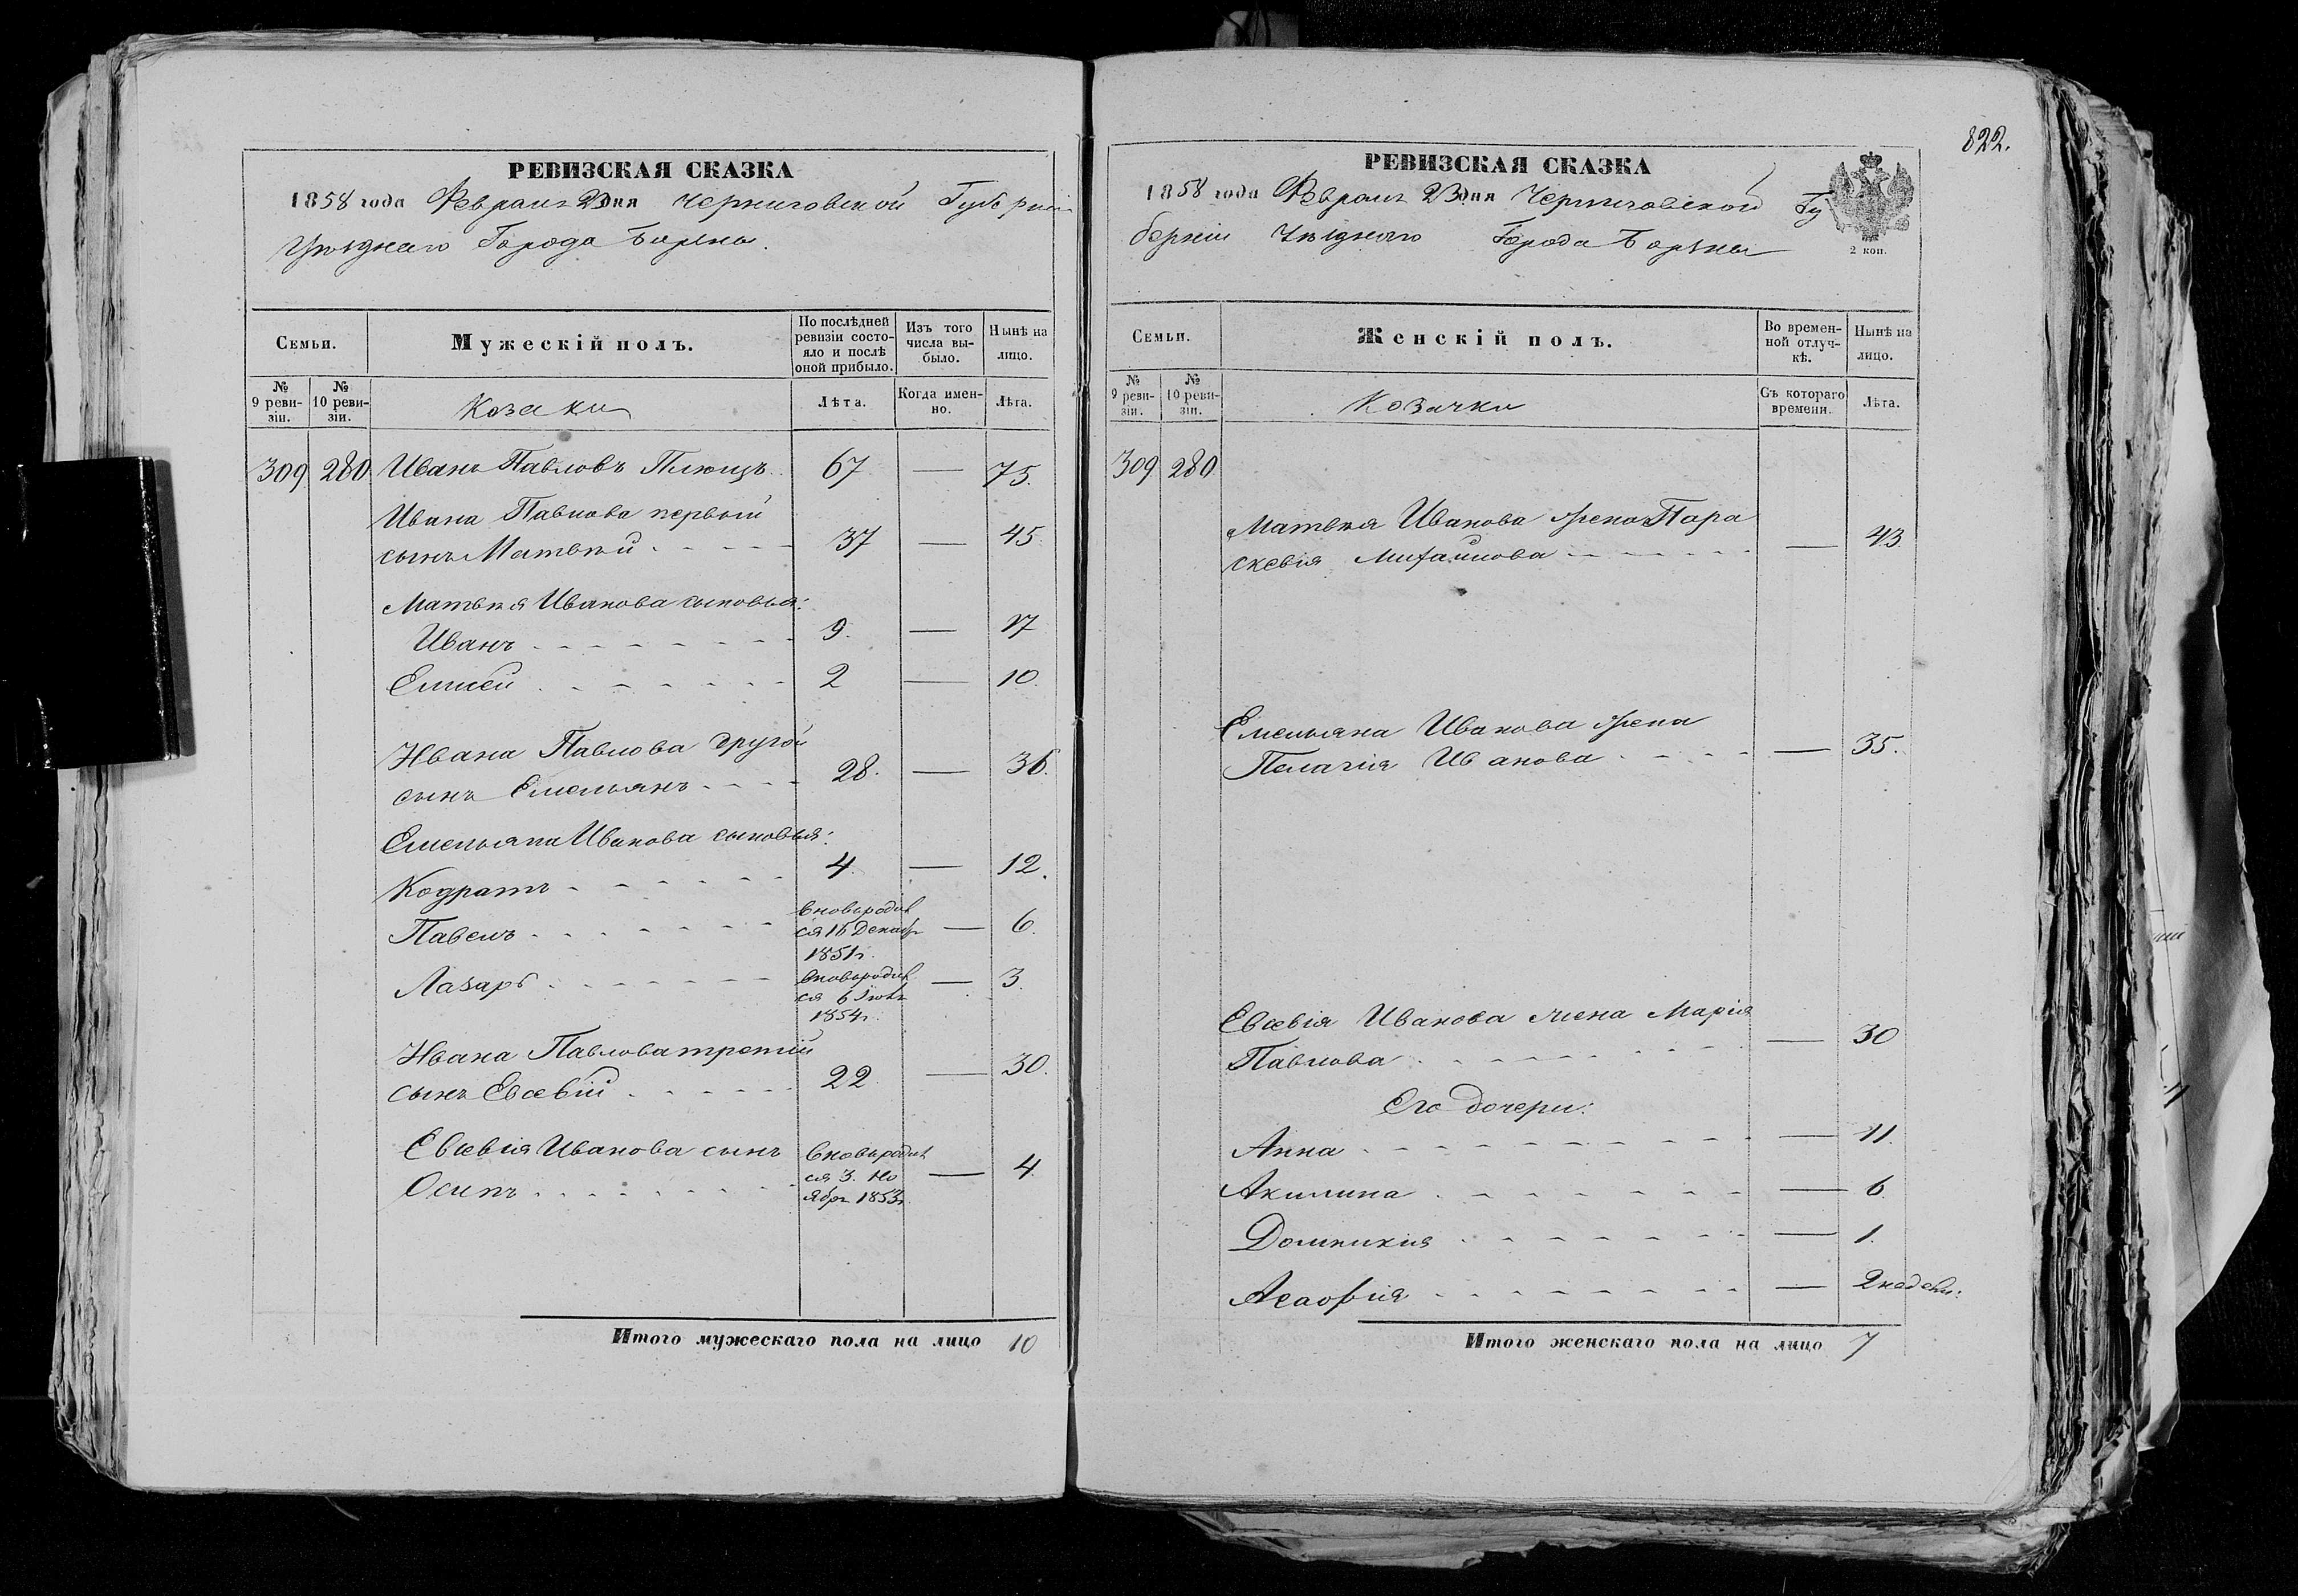 822.
РЕВИЗСКАЯ СКАЗКА
1858 года Февраля 23 дня Черниговской Губерніи
Уѣзднаго Города Борзны.
Семьи.
Мужескій полъ.
По послѣдней ревизіи состояло и послѣ оной прибыло.
Изъ того числа выбыло.
Нынѣ на лицо.
№ 9 ревизіи.
№ 10 ревизіи.
Козаки
Лѣта.
Когда именно.
Лѣта.
309 280 Иванъ Павловъ Плющъ 67 — 75.
Ивана Павлова первый
сынъ Матвѣй 37 — 45.
Матвѣя Иванова сыновья:
Иванъ 9. — 17
Елисей 2 — 10.
Ивана Павлова другой
сынъ Емельянъ 28. — 36.
Емельяна Иванова сыновья:
Кодратъ 4 — 12.
Павелъ вновьродив — 6.
ся 16 Декабр
1851г.
Лазарь вновьродив — 3.
ся 6
1854г.
Ивана Павлова третій
сынъ Евсевій 22 — 30.
Евсевія Иванова сынъ вновьродив
Осипъ ся 3. Но — 4.
ябр. 1853г.
Итого мужескаго пола на лицо 10
РЕВИЗСКАЯ СКАЗКА
1858 года Февраля 23 дня Черниговской Гу
берніи Уѣзднаго Города Борзны
2 коп.
Семьи.
Женскій полъ.
Во временной отлучкѣ.
Нынѣ на лицо.
№ 9 ревизіи.
№ 10 ревизіи.
Козачки
Съ котораго времени.
Лѣта.
309 280
Матвѣя Иванова жена Пара
скевія Михайлова — 43.
Емельяна Иванова жена
Пелагія Иванова — 35.
Евсевія Иванова жена Марія
Павлова — 30
Его дочери:
Анна — 11.
Акилина — 6.
Домникия — 1.
— 2 недели:
Итого женскаго пола на лицо 7